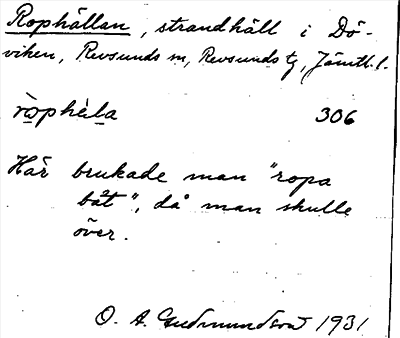 Rophällan, strandhäll i Dö-
viken, Revsunds sn, Revsunds tg, Jämtl. l.
ròphèla 306
Här brukade man "ropa
båt", då man skulle
över.
O. A. Gudmundson 1931